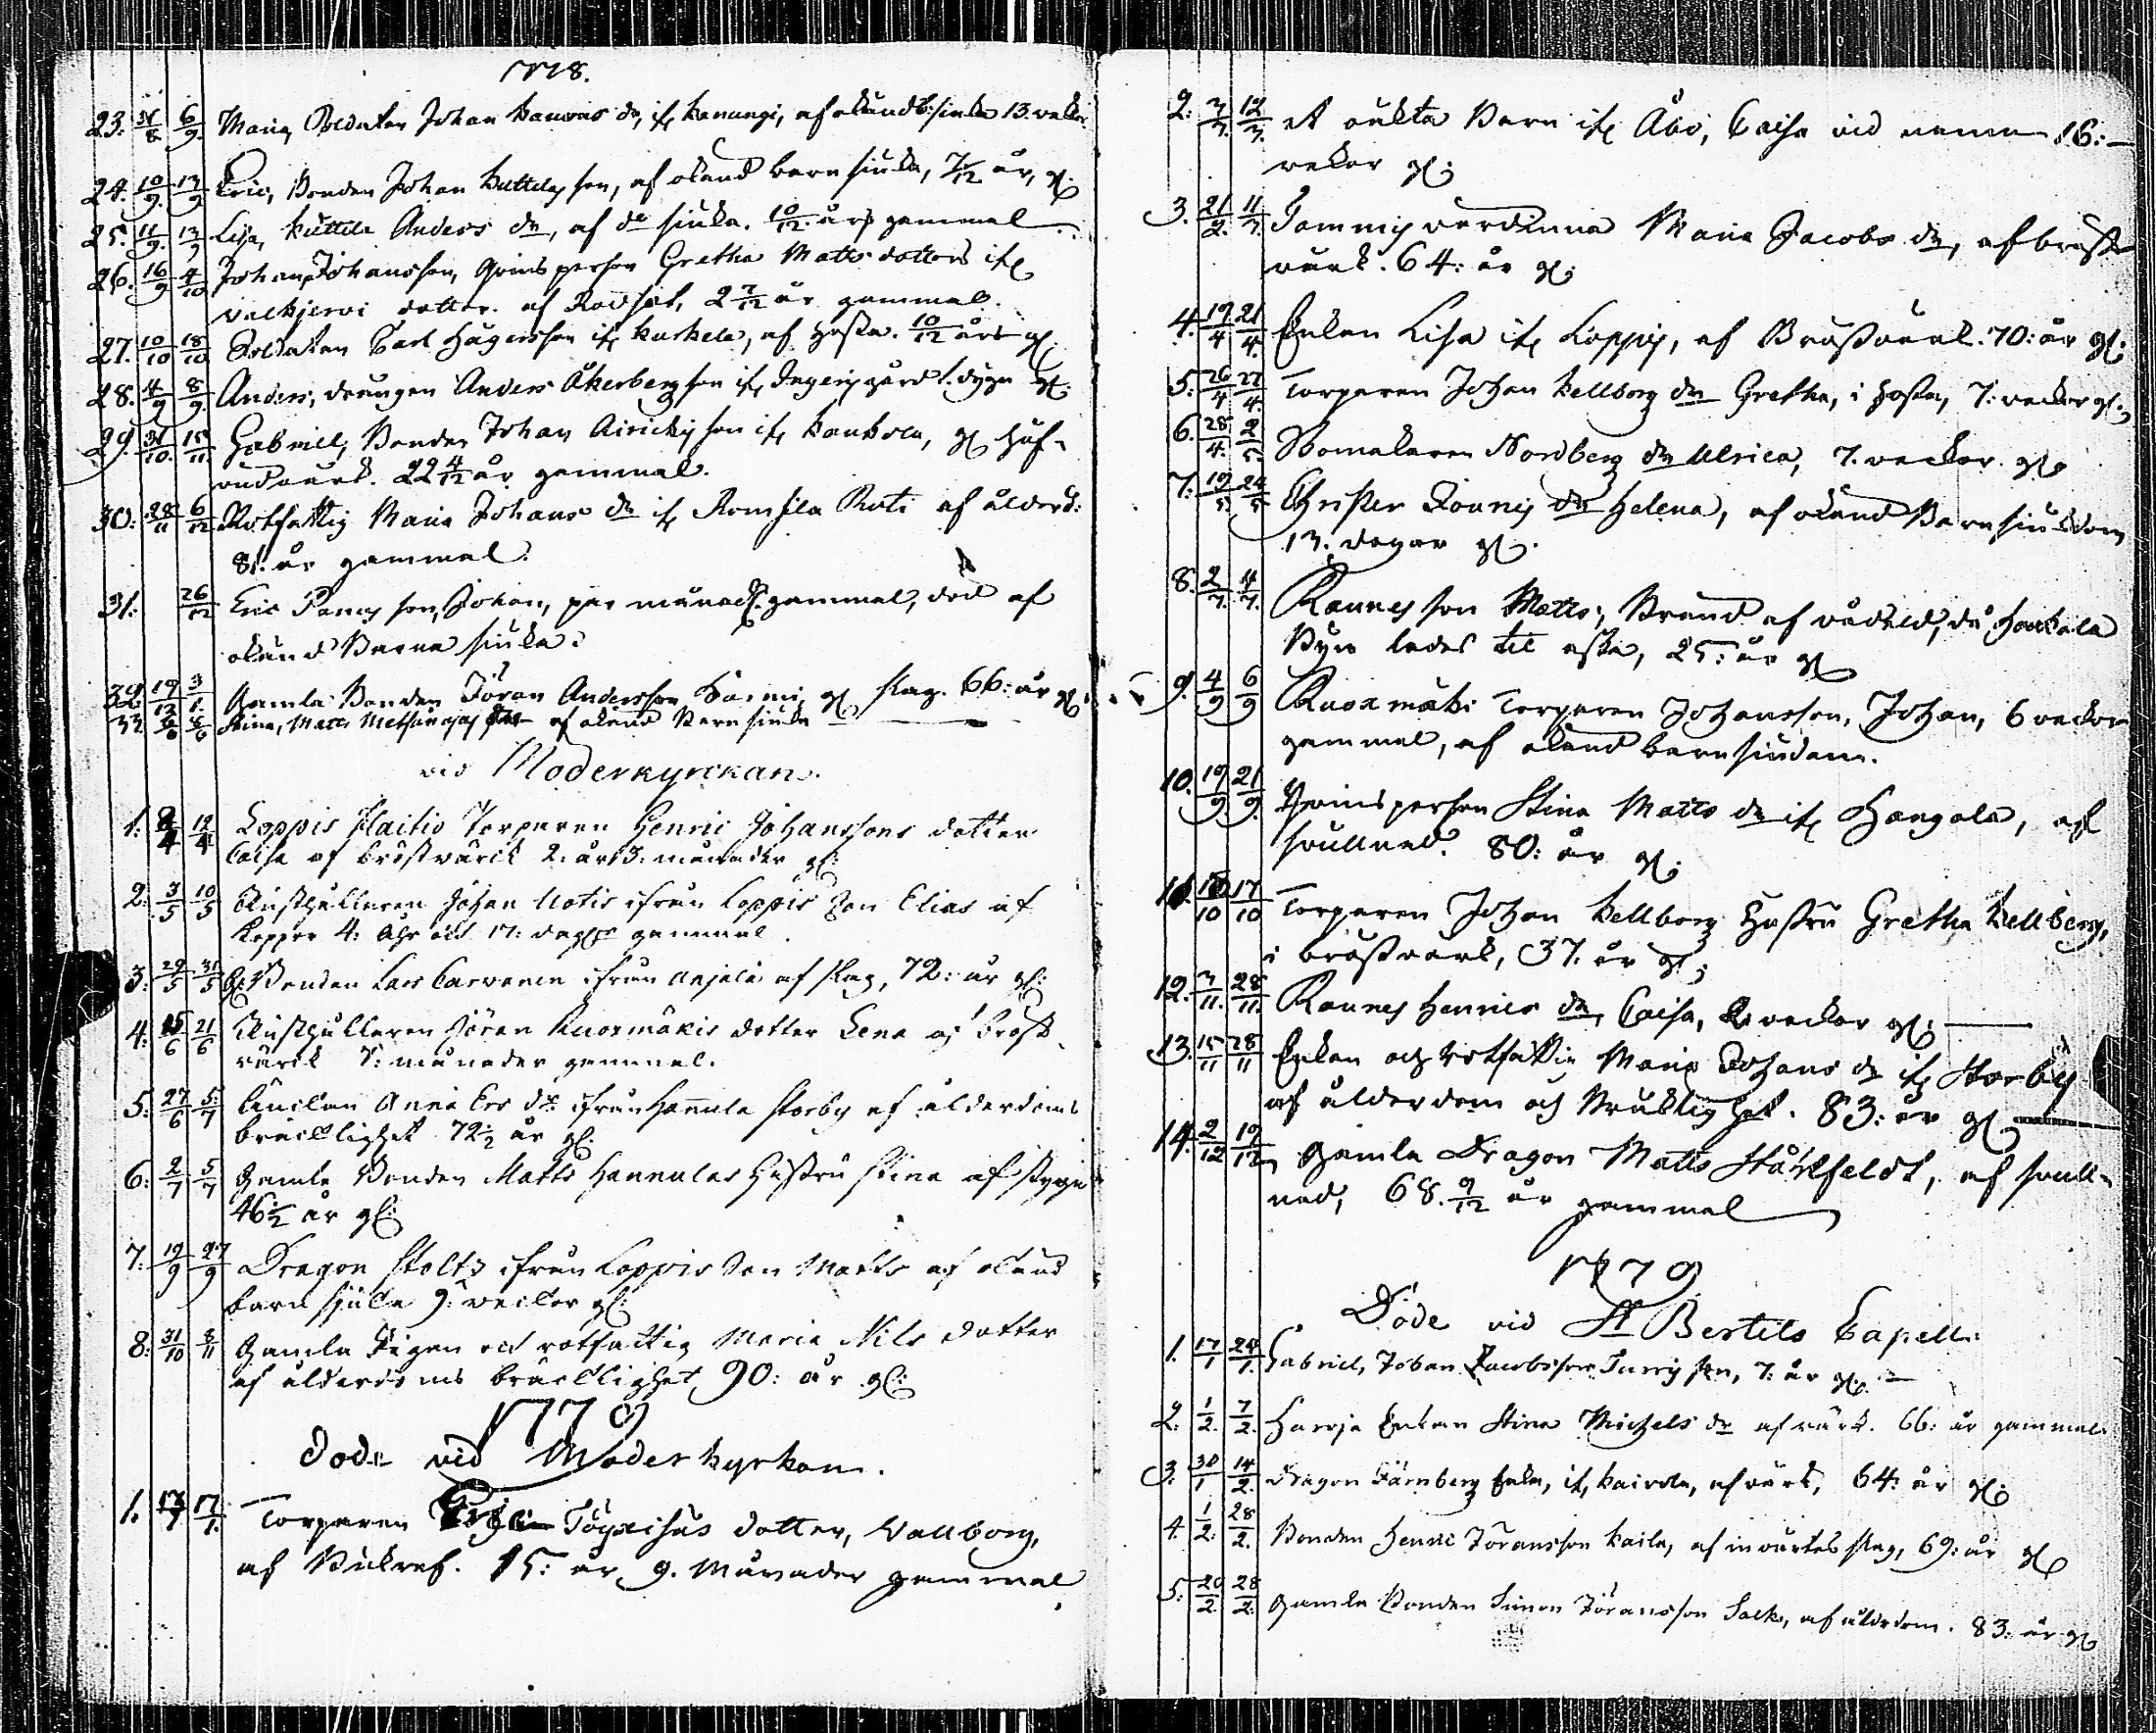 1778.
23. 31/8 6/9 Maria, Soldaten Johan dr, if. Hanungi, af okänd b:siuka 13. vekor
24. 10/9 13/9 Eric, Bonden Johan Huttelas son, af okänd barn siuka, 7/12 år, gl.
25. 11/9 13/9 Lisa, Huttela Anders dr, af do siuka. 10/12 års gammal
26. 16/9 4/10 Johan Johansson, qvins person Gretha Matts dotters if.
Valkjervi dotter. af Rödsot, 2 7/12 år gammal.
27. 10/10 18/10 Soldaten Carl Hägersson if. Kuskela, af hosta. 10/12 års gl.
28. 4/9 8/9 Anders, drängen Anders Åkerbergs son if. Ingeris gård 1. dygn gl.
29. 31/10 15/11 Gabriell, Bonden Johan son if. Kaukola, gl. huf-
vudvärk. 22 4/12 år gammal.
30. 28/11 6/12 Rotfattig Maria Johans dr if. Romsila Roti af ålderd:
81. år gammal.
31. 26/12 Eric son, Johan, par månad. gammal, död af
okänd Barna siuka.
32. 19/12 3/1. Gamla Bonden Jöran Andersson gl. slag. 66: år gl.
33. 6/6 Stina, Matts af okänd Barn siuka
vid Moderkyrckan.
1: 8/4 12/4 Loppis Flaitio Torparen Henric Johanssons dotter
Caisa af bröstvärck 2: år 3: månader gl:
2: 3/5 10/5 Johan Uotis ifrån Loppis son Elias af
Koppor 4: åhr och 17: dagar gammal.
3: 29/5 31/5 gl: Bonden Lars Carvonen ifrån Anjala af slag, 72: år gl:
4: 15/6 21/6 Jöran Ruoxmäkis dotter Lena af bröst
värck 7: månader gammal.
5: 27/6 5/7 Enckan Anna Ers dr: ifrån Hannula storby af ålderdoms
bräcklighet 72 1/2 år gl:
6: 2/7 5/7 Gamla Bonden Matts Hannulas Hustru Stina af styng
46 1/2 år gl:
7: 19/9 27/9 Dragon Stoltz ifrån Loppis son Matts af okänd
barn sjuka 9: veckor gl:
8: 31/10 8/11 Gamla Pigan och rotfattig Maria Nils dotter
af ålderdoms bräcklighet 90: år gl:
1779
Döde vid Moderkyrkan.
1. 13/1 17/1. Torparen dotter, Wallborg,
af 15: år 9. Månader gammal
2: 7/7. 12/7. et oäkta Barn if. Åbo, Caisa vid namn 16:
vekor gl.
3. 21/2. 11/7. Tommis värdinna Maria Jacobs dr, af bröst
värk. 64: år gl.
4. 19/4 21/4 Enkan Lisa if. Loppis, af Bröstvärk. 70: år gl.
5: 26/4 27/4. Torparen Johan Hellborg dr Gretha, i hosta, 7: veckor gl.
6. 28/4. 2/5. Skomakaren Nordberg dr Ulrica, 7. veckor gl.
7: 19/5. 24/5 Christer dr Helena, af okänd Barn siukdom
13. dagar gl.
8. 2/7. 4/7. Raunes son Matts, Brand af vådeld, då Haukala
Byn lades til aska, 25: år gl.
9. 4/9 6/9 Ruoxmäki Torparen Johansson, Johan, 6 veckor
gammal, af okänd barnsiudom.
10. 19/9. 21/9. Qvinsperson Stina Matts dr if. Hangala, af
svullnad. 80: år gl.
11. 15/10 17/10 Torparen Johan Hellborg Hustru Gretha Hellberg,
i bröstvärk, 37. år gl.
12. 7/11. 28/11. Raunes Henrics dr, Caisa, veckor gl.
13. 15/11 28/11 Enkan och Rotfattig Maria Johans dr if. Storby
af ålderdom och Bräklighet. 83: år gl.
14. 2/12 19/12 Gamla Dragon Matts Stårfeldt, af svull-
nad, 68. 9/12 år gammal
1779
Döde vid St Bertils Capell:
1. 17/1 24/1. Gabriel, Johan Jacobsson son, 7: år gl.
2. 1/2. 7/2. Harja Enkan Stina Michels dr af värk. 66: år gammal.
3. 30/1 14/2. Dragon Färnberg Enka, if. Kaivola, af värk, 64: år gl.
4. 1/2: 28/2. Bonden Henric Jöransson Kaila, af invärtes slag, 69: år gl.
5: 20/2 28/2. Gamla Bonden Simon Jöransson Salko, af ålderdom. 83: år gl.